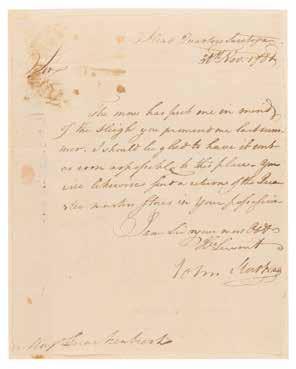 Head Quarters Saratoga
30th Nov. 1781
Sir
The snow has put me in mind
of the Sleigh you promised me last sum-
mer. I should be glad to have it sent
as soon as possible to this place, you
will likewise send a return of the Quar-
ter master stores in your possession
I am Sir your most Obdt
Hbl Servant
John Stark